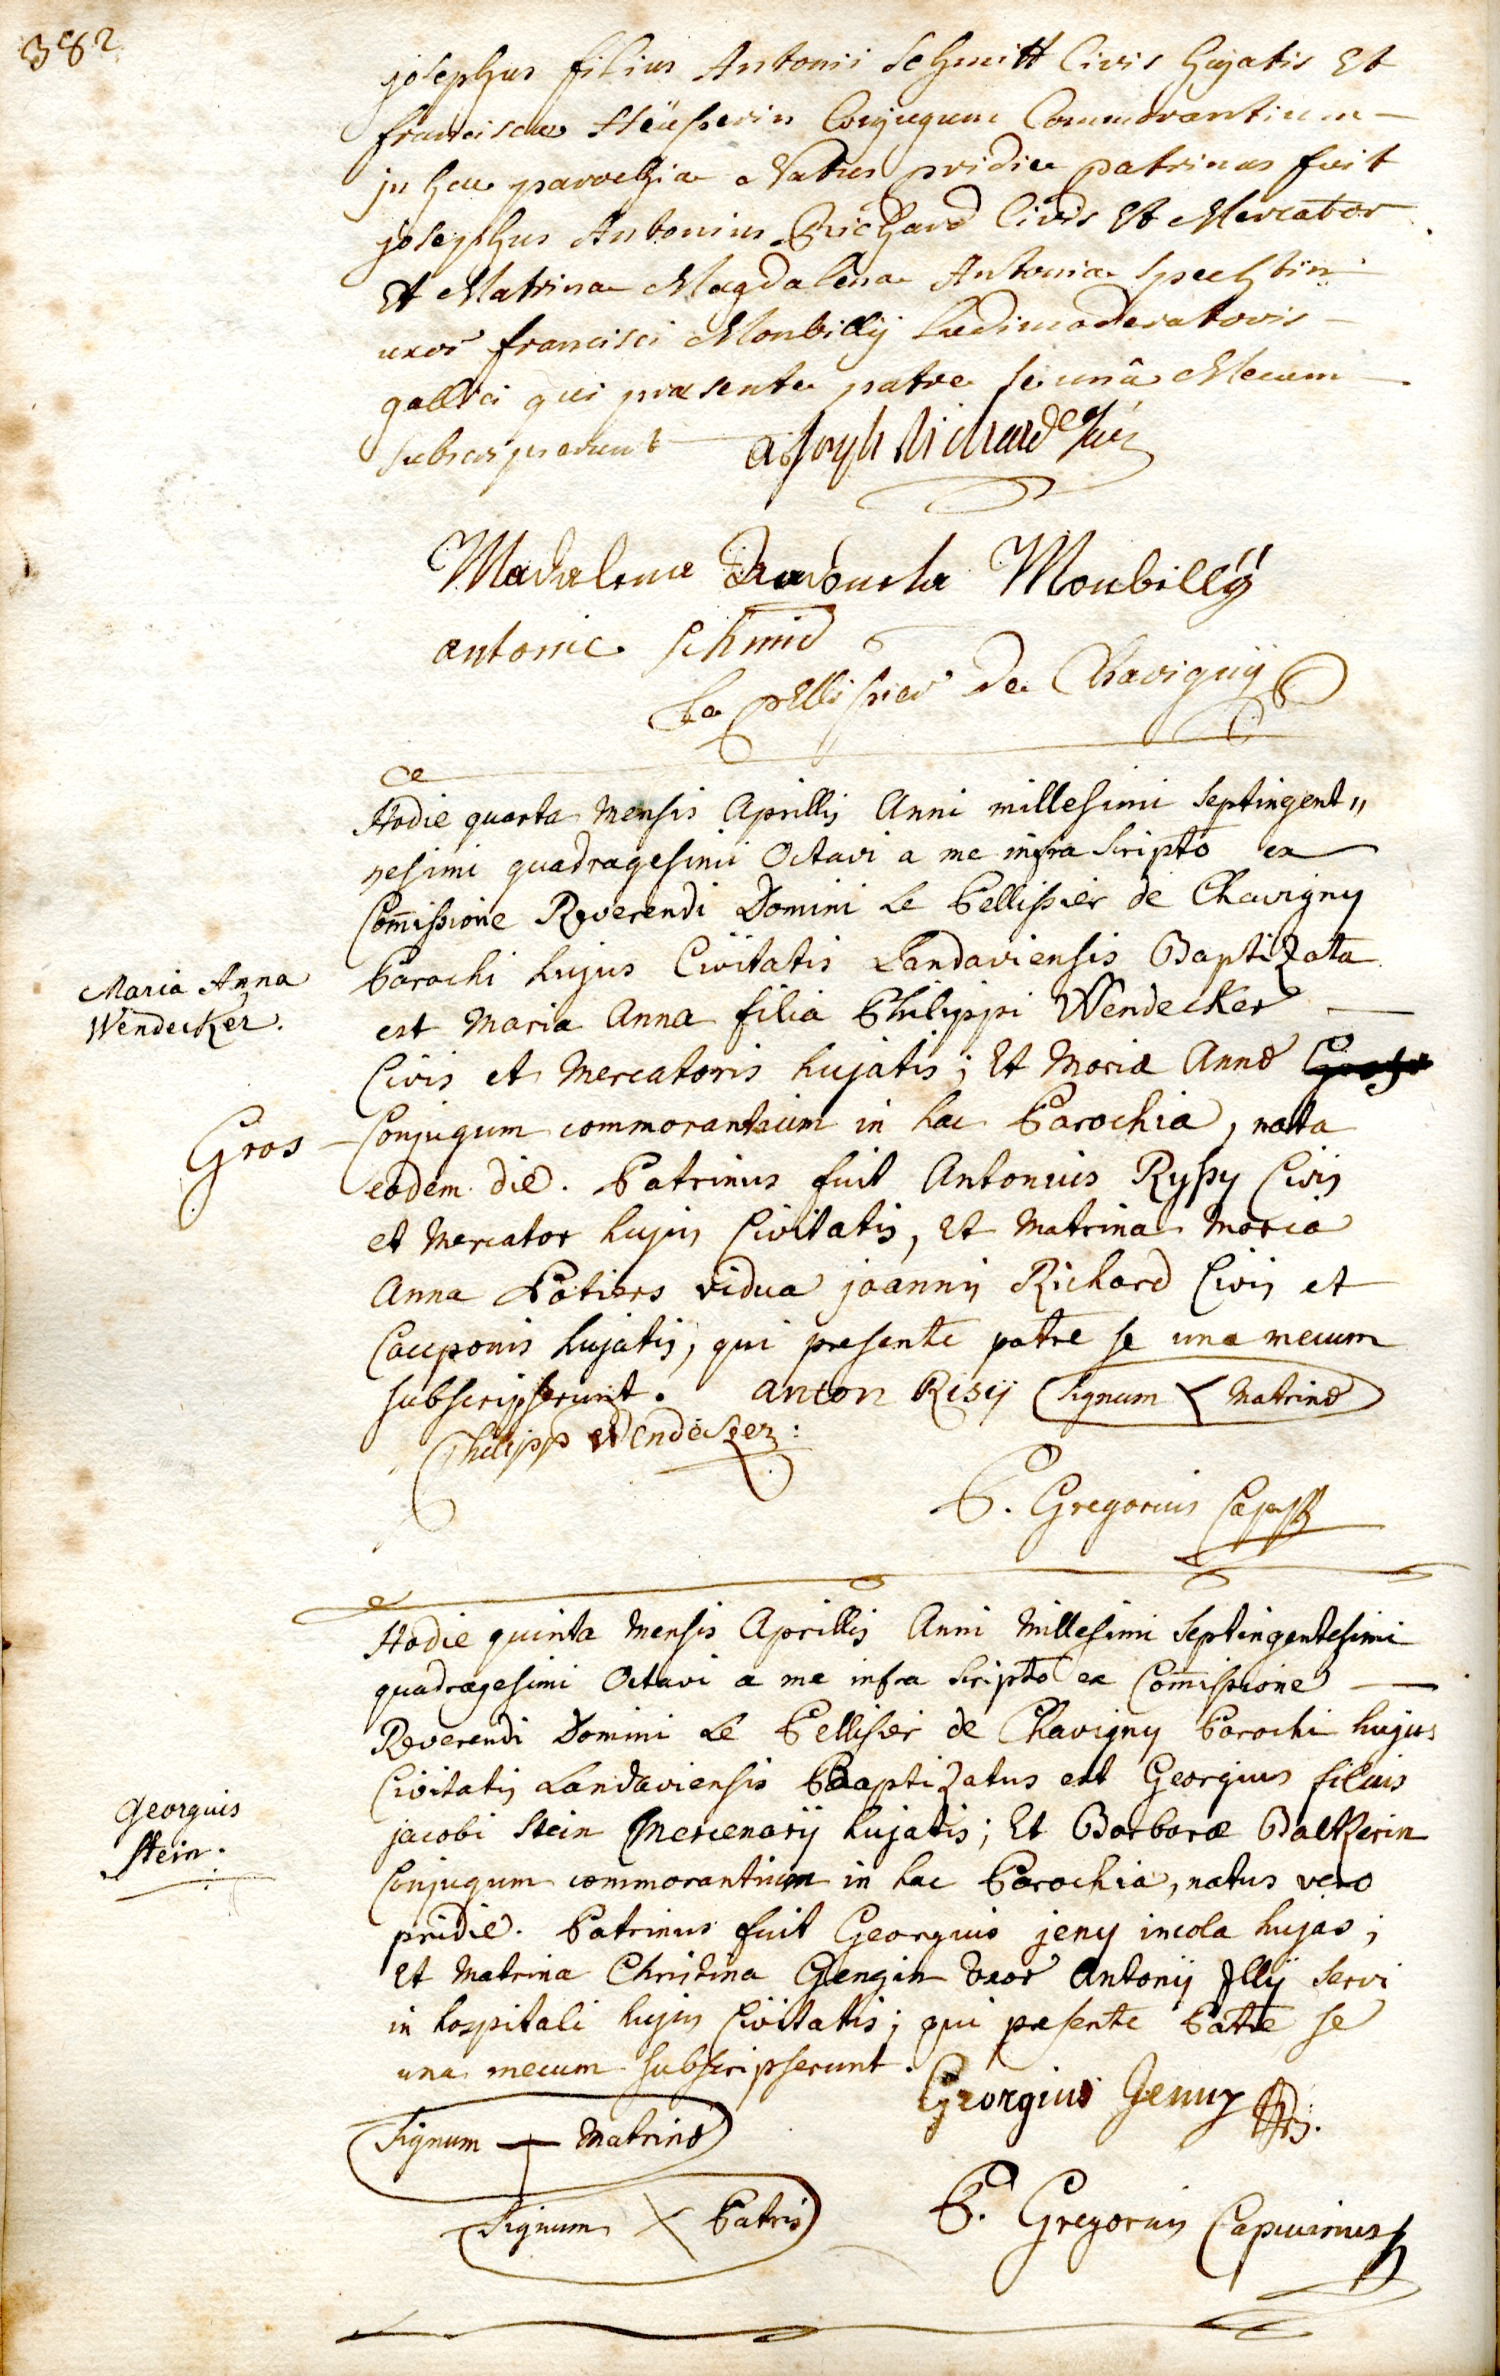 382
josephus filius Antonii Schmitt Civis hujatis Et
franciscae Heüsserin Conjugum Commorantium
in hac parochia Natus pridie patrinus fuit
josephus Antonius Richard Civis Et Mercator
Et Matrina Magdalena Antonia Spechtin
uxor francisci Monbillij Ludimoderatoris
gallici qui praesente patre se unâ Mecum
subscripserunt Richard
Madalena Monbillÿ
antonie Schmid
Le pellissier de Chavignÿ
Hodie quarta mensis Aprillis Anni millesimi septingent"
nesimi quadragesimi Octavi a me infra scripto ex
Com̄issione Reverendi Domini Le Pellissier de Chavigny
Parochi hujus Civitatis Landaviensis Baptizata
Maria Anna
Wendecker.
est Maria Anna filia Philippi Wendecker
Civis et Mercatoris hujatis; Et Mariæ Annæ
Gros
Conjugum commorantium in hac Parochia, nata
eodem die. Patrinus fuit Antonius Ryssy Civis
et Mercator hujus Civitatis, Et Matrina Maria
Anna Potiers vidua joannis Richard Civis et
Cauponis hujatis, qui presente patre se una mecum
subscripserunt. anton Risij Signum X Matrinæ
Philipp Wendecker:
P. Gregorius
Hodie quinta Mensis Aprillis Anni Millesimi Septingentesimi
quadragesimi Octavi a me infra scripto ex Com̄issione
Reverendi Domini Le Pellisier de Chavigny Parochi hujus
Civitatis Landaviensis Baaptizatus est Georgius filius
Georguis
Stein.
jacobi Stein Mercenarij hujatis; Et Barbaræ Baltzerin
Conjugum commorantium in hac Parochia, natus vero
pridie. Patrinus fuit Georguis jeny incola hujas;
Et Matrina Christina Gengin Uxor Antonij Illij servi
in hospitali hujus Civitatis; qui presente Patre se
una mecum subscripserunt.
Georgius Jenny
Signum + Matrinæ
Signum X Patris
P. Gregorius Capucinus